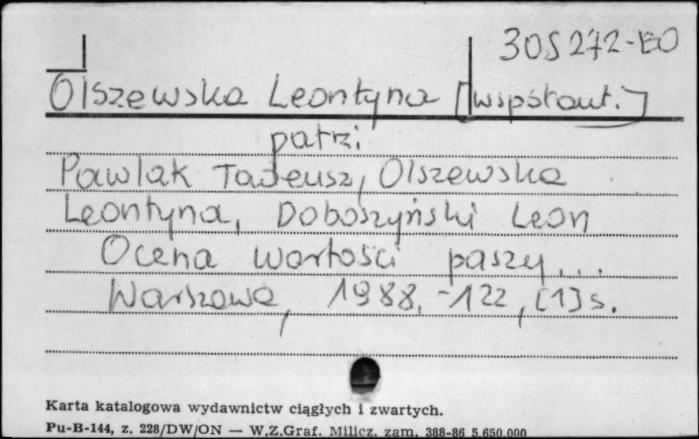 30S272-EO
Olszewska Leontyna [współaut.]
patrz.
Pawlak Tadeusz, Olszewska
Leontyna, Doboszyński Leon
Ocena wartości paszy...
Warszawa, 1988. -122, [1] s.
Karta katalogowa wydawnictw ciągłych i zwartych.
Pu-B-144, z. 228/DW/ON — W.Z.Graf. Milicz. zam. 388-86 5.650.000